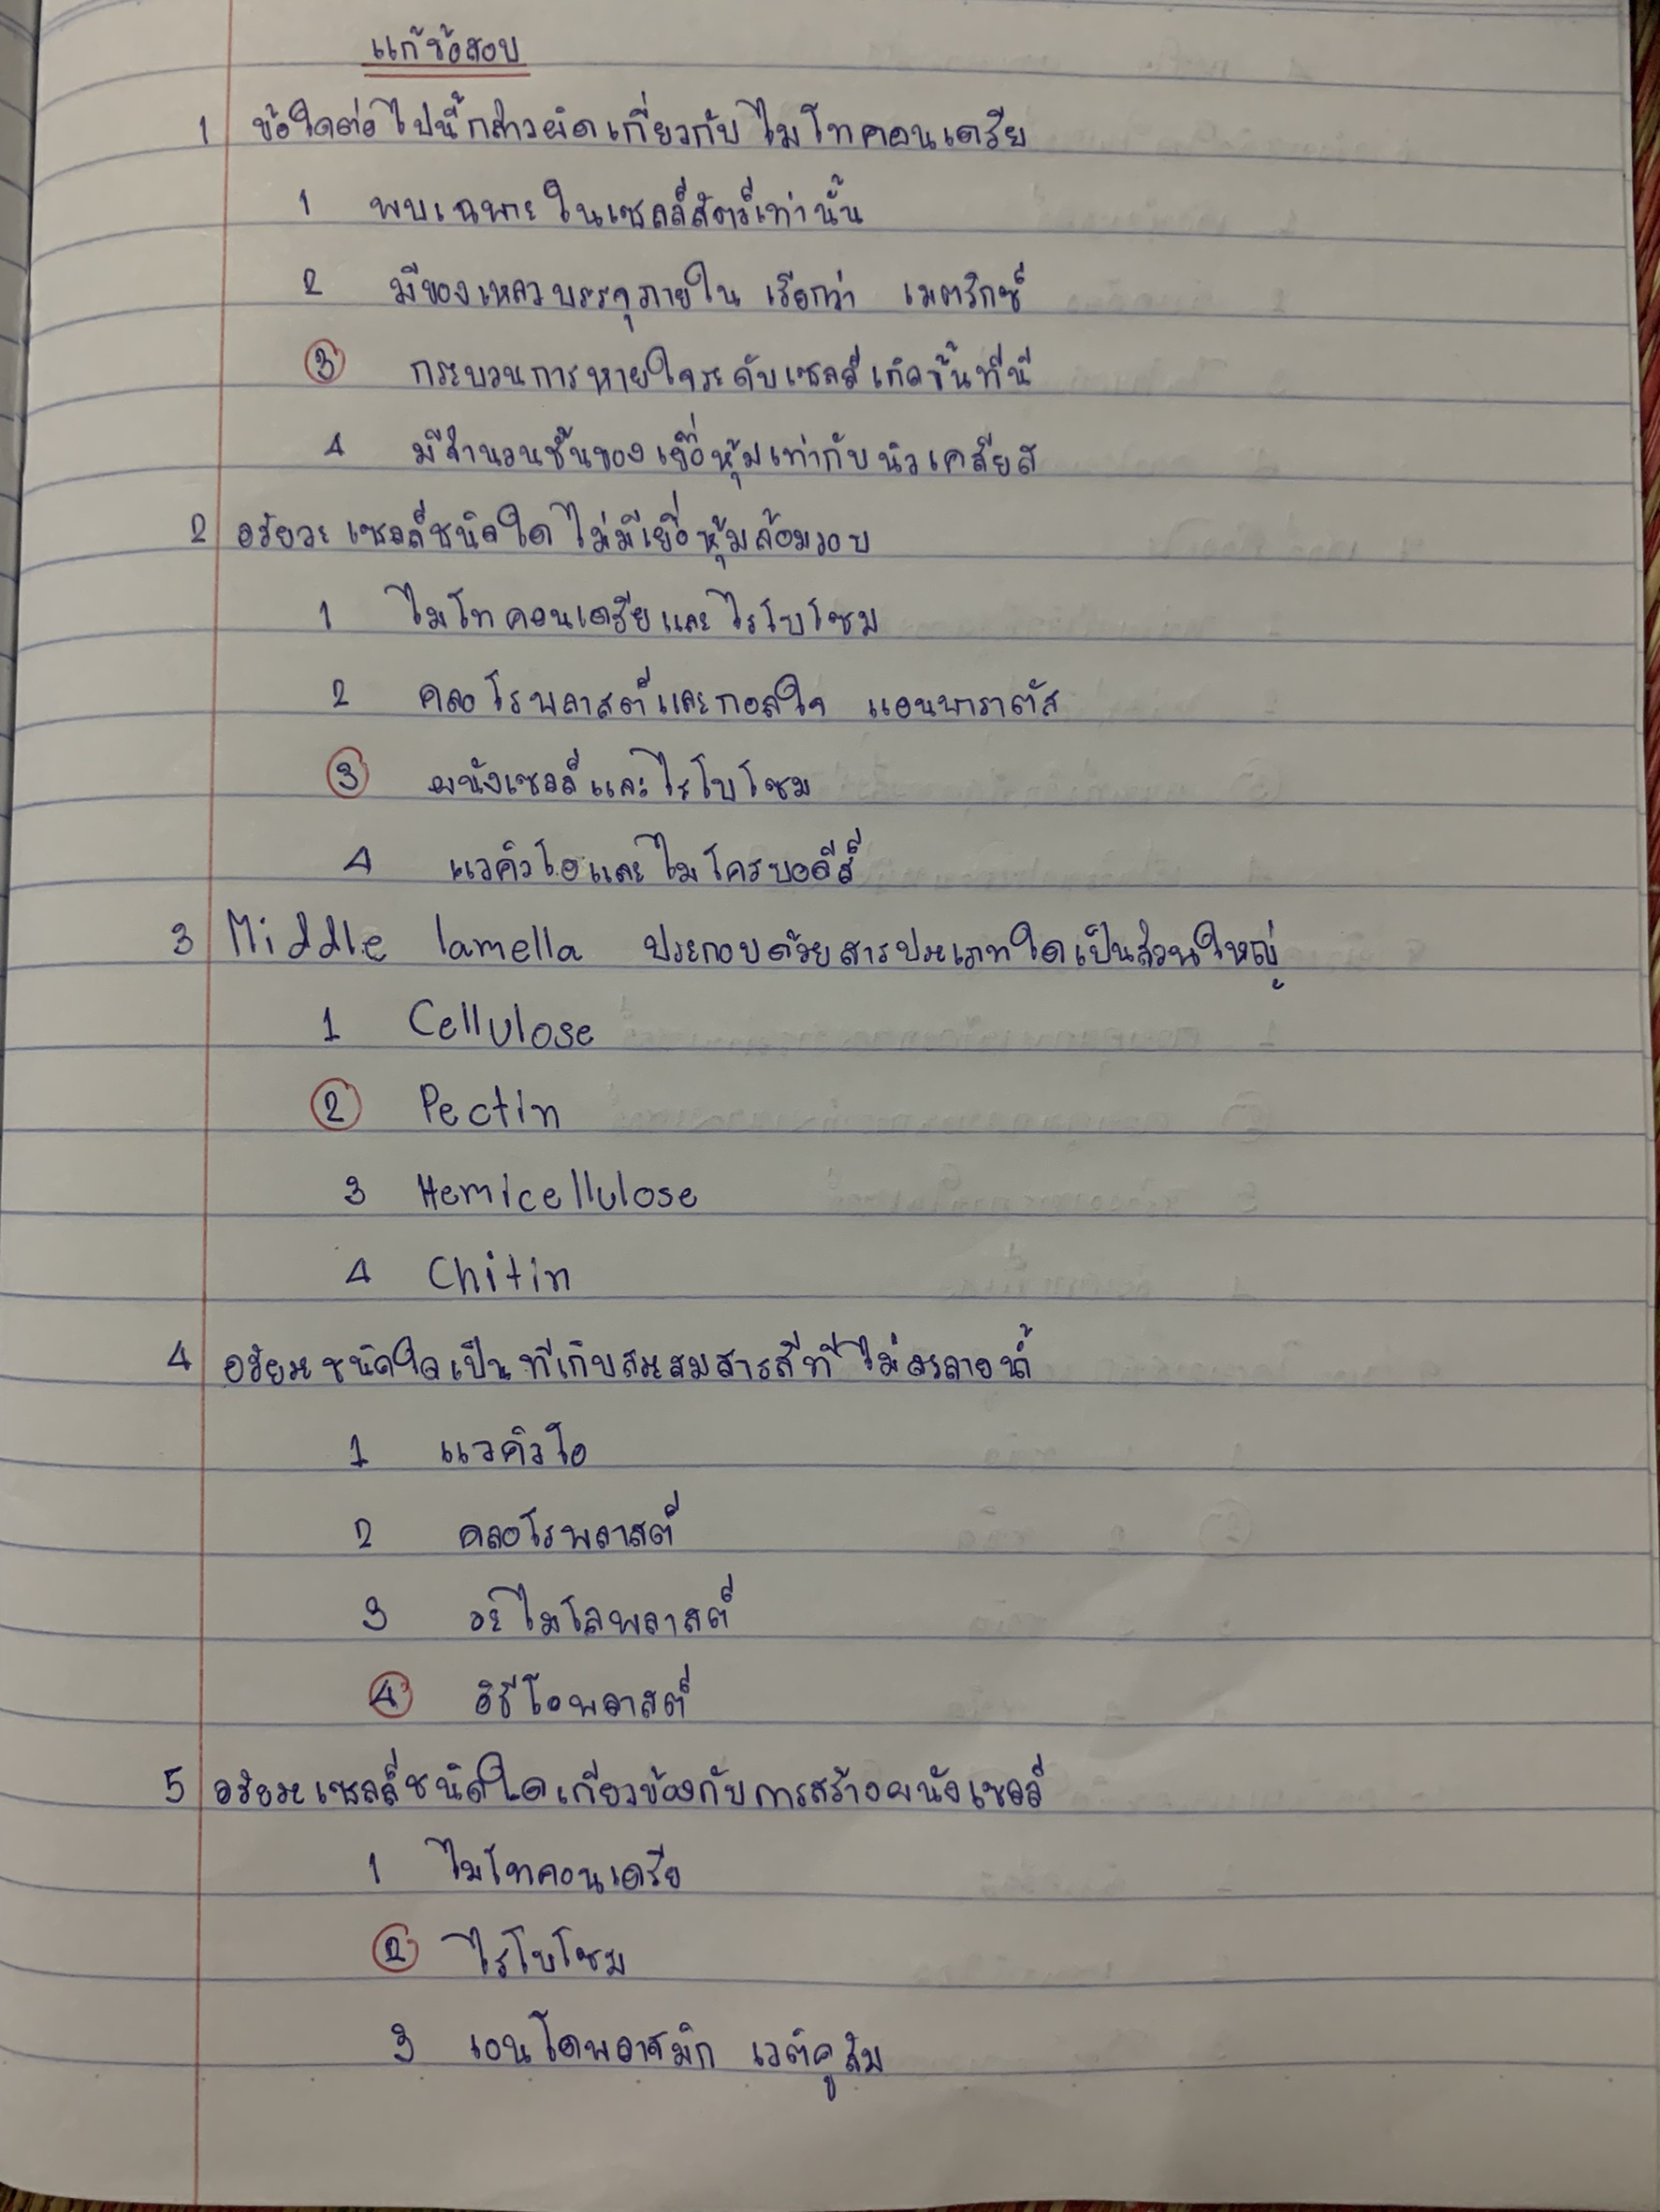 แก้ข้อสอบ
1 ข้อใดต่อไปนี้กล่าวผิดเกี่ยวกับไมโทคอนเดรีย
1 พบเฉพาะในเซลล์สัตว์เท่านั้น
2 มีของเหลวบรรจุภายใน เรียกว่า เมตริกซ์
3 กระบวนการหายใจระดับเซลล์เกิดขึ้นที่นี่
4 มีจำนวนชั้นของเยื่อหุ้มเท่ากับนิวเคลียส
2 อวัยวะเซลล์ชนิดใดไม่มีเยื่อหุ้มล้อมรอบ
1 ไมโทคอนเดรียและไรโบโซม
2 คลอโรพลาสต์และกอลใจ แอนพาราตัส
3 ผนังเซลล์และไรโบโซม
4 แวคิวโอและไมโครบอดีส์
3 Middle lamella ประกอบด้วยสารประเภทใดเป็นส่วนใหญ่
1 Cellulose
2 Pectin
3 Hemicellulose
4 Chitin
4 อวัยวะชนิดใดเป็นที่เก็บสะสมสารสีที่ไม่ละลายน้ำ
1 แวคิวโอ
2 คลอโรพลาสต์
3 อะไมโลพลาสต์
4 อิธีโอพลาสต์
5 อวัยวะเซลล์ชนิดใดเกี่ยวข้องกับการสร้างผนังเซลล์
1 ไมโทคอนเดรีย
2 ไรโบโซม
3 เอนโดพลาสมิก เรติคูลัม